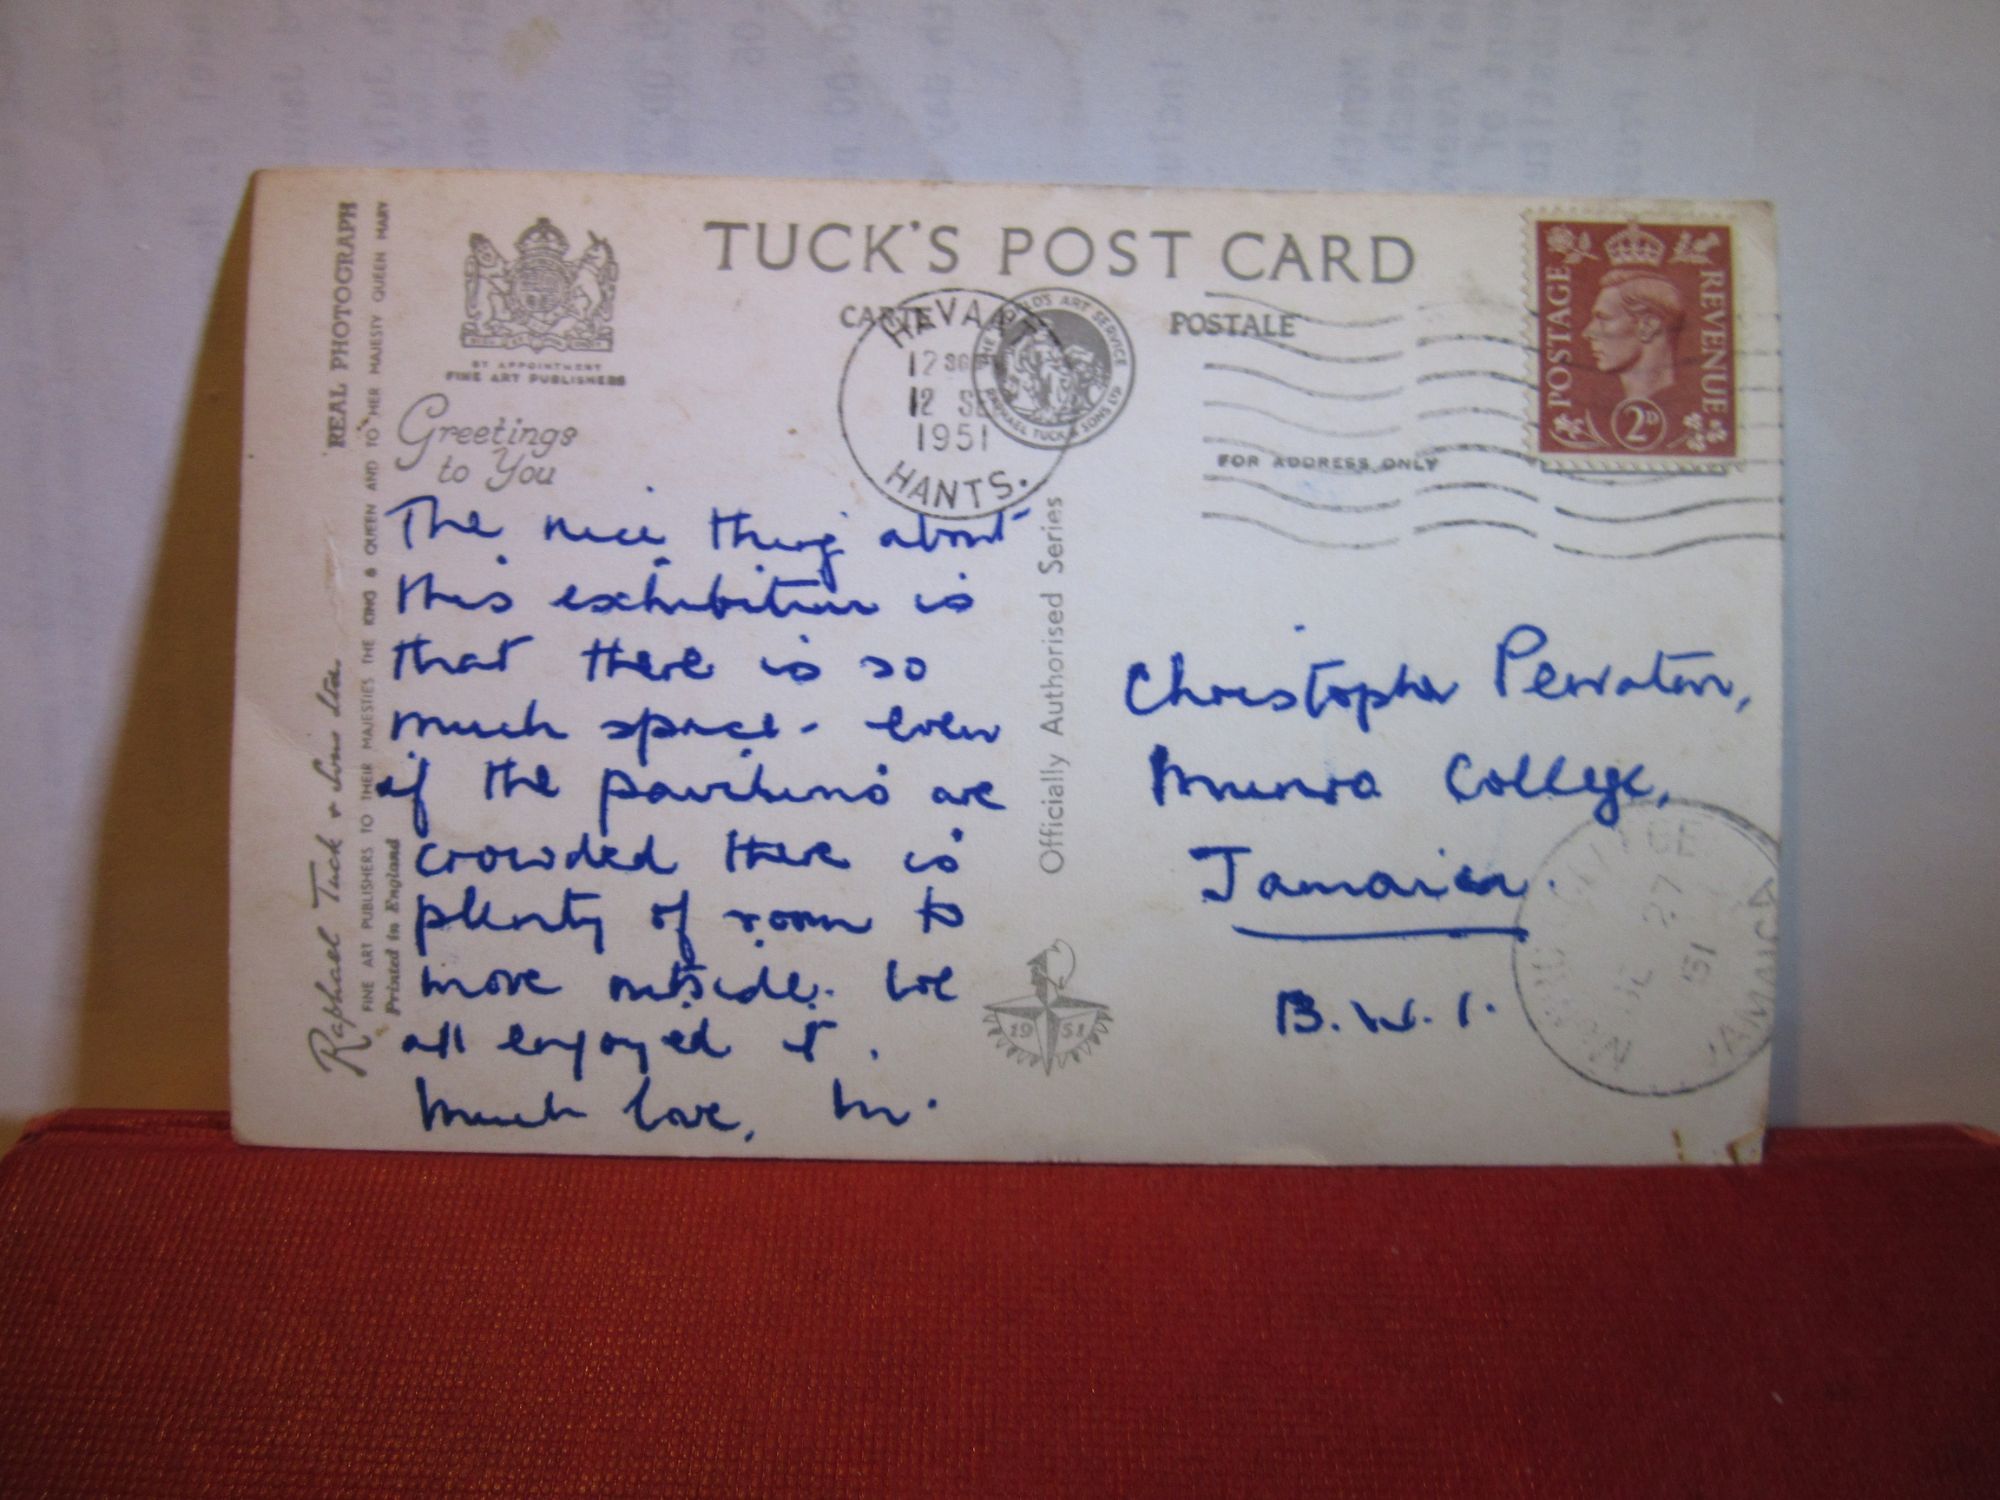 TUCK'S POST CARD
CARTE POSTALE
BY APPOINTMENT
FINE ART PUBLISHERS
Greetings
to You
The nice thing about
this exhibition is
that there is so
much space - even
if the pavilions are
crowded there is
plenty of room to
move outside. We
all enjoyed it.
Much love, M.
REAL PHOTOGRAPH
Raphael Tuck & Sons Ltd.
FINE ART PUBLISHERS TO THEIR MAJESTIES THE KING & QUEEN AND TO HER MAJESTY QUEEN MARY
Printed in England
Officially Authorised Series
THE WORLD'S ART SERVICE
RAPHAEL TUCK & SONS LTD
12
12 SE
1951
HANTS.
19 51
POSTAGE
REVENUE
2D
FOR ADDRESS ONLY
Christopher
Munro College,
Jamaica.
B.W.I.
27
51
JAMAICA